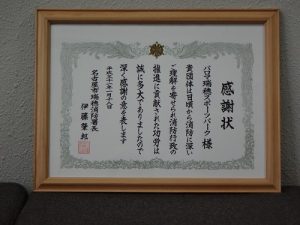 感謝状
パロマ瑞穂スポーツパーク 様
貴団体は日頃から消防に深い
ご理解を寄せられ消防行政の
推進に貢献された功労は
誠に多大でありましたので
深く感謝の意を表します
平成三十一年一月十八日
名古屋市瑞穂消防署長
伊藤